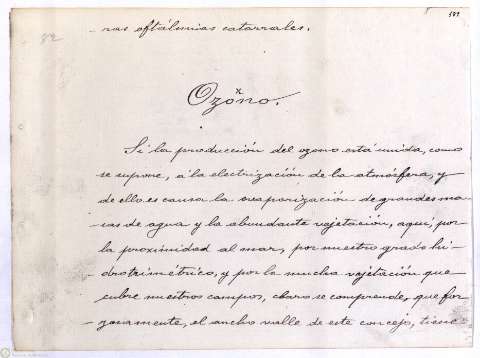 589
82
nas oftálmias catarrales.
Ozono.
Si la producción del ozono está unida, como
se supone, á la electrización de la atmósfera, y
de ello es causa la evaporización de grandes ma-
sas de agua y la abundante vajetación, aqui, por
la proximidad al mar, por nuestro grado hi-
drotrimétrico, y por la mucha vajetación que
cubre nuestros campos, claro se comprende, que for-
zosamente, el ancho valle de este concejo, tiene